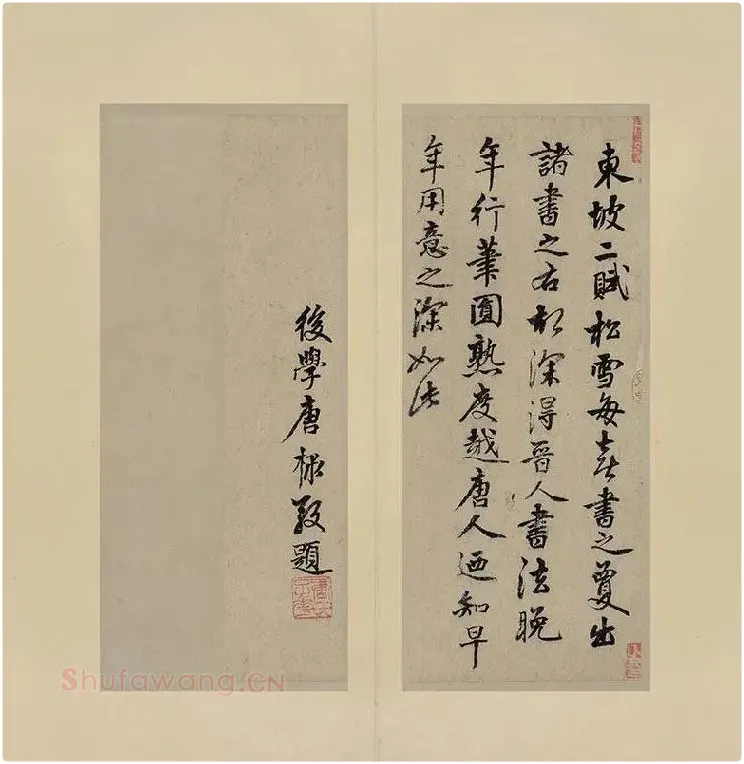 東坡二賦松雪每喜書之敻出
諸書之右初深得晉人書法晚
年行筆圓熟度越唐人迺知早
年用意之深如此
後學唐棣敬題
Shufawang.CN